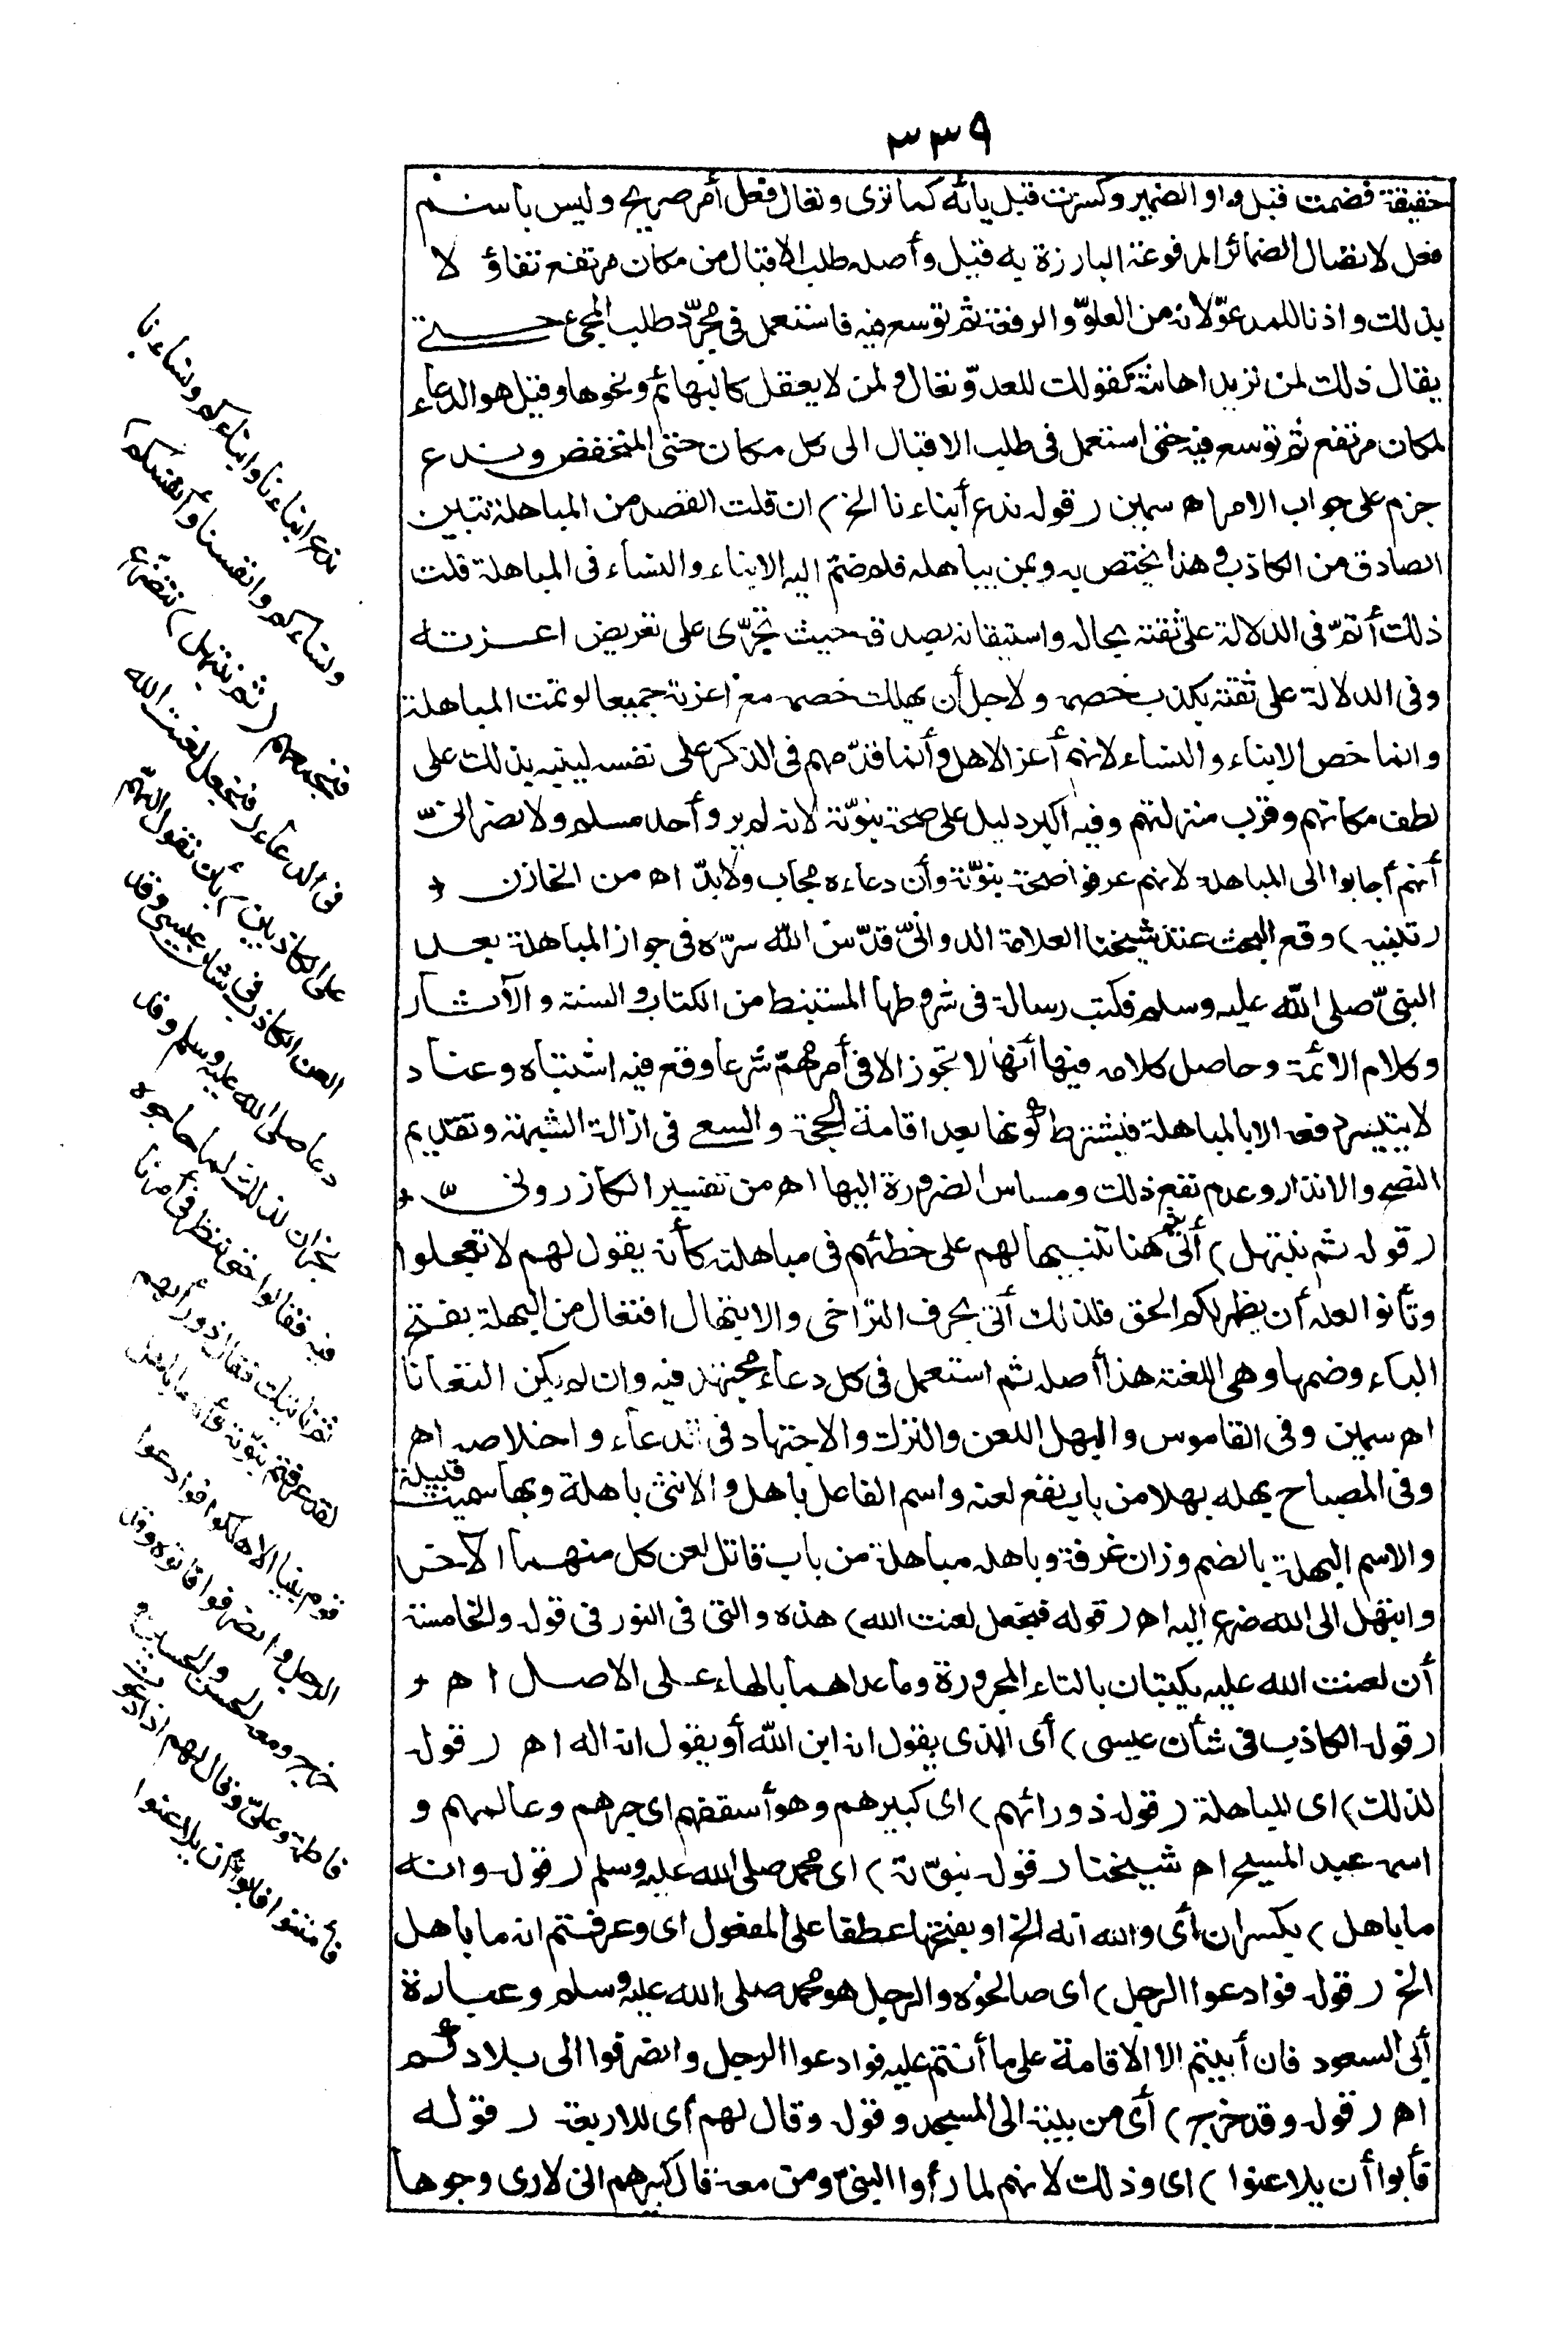 ٣٣٩
حقيقة فضمت قبل واو الضمير وكسرت قبل يائه كما ترى وتعال فعل أمر صريح وليس باسم
فعل لاتصال الضمائر المرفوعة البارزة به قيل وأصله طلب الاقبال من مكان مرتفع تفاؤلا
بذلك واذنا للمدعوّ لانه من العلوّ والرفعة ثم توسع فيه فاستعمل في مجرّد طلب المجيء حتى
يقال ذلك لمن تريد اهانته كقولك للعدوّ تعال ولمن لا يعقل كالبهائم ونحوها وقيل هو الدعاء
لمكان مرتفع ثم توسع فيه حتى استعمل في طلب الاقبال الى كل مكان حتى المنخفض وندع
جزم على جواب الامر اه سمين (قوله ندع أبناءنا الخ) ان قلت القصد من المباهلة تبيين
الصادق من الكاذب وهذا يختص به وبمن يباهله فلم ضم اليه الابناء والنساء في المباهلة قلت
ذلك أتمّ في الدلالة على ثقته بحاله واستيقانه بصدقه حيث تجرّى على تعريض اعزته
وفي الدلالة على ثقته بكذب خصمه ولاجل أن يهلك خصمه مع اعزته جميعا لو تمت المباهلة
وانما خص الابناء والنساء لانهم أعز الاهل وأنما قدّمهم في الذكر على نفسه لينبه بذلك على
لطف مكانهم وقرب منزلتهم وفيه أكبر دليل على صحة نبوّته لانه لم يرو أحد مسلم ولا نصرانيّ
أنهم أجابوا الى المباهلة لانهم عرفوا صحة نبوّته وأن دعاءه مجاب ولابدّ اه من الخازن
(تنبيه) وقع البحث عند شيخنا العلامة الدوانيّ قدّس الله سرّه في جواز المباهلة بعد
النبيّ صلى الله عليه وسلم فكتب رسالة في شروطها المستنبط من الكتاب والسنة والآثار
وكلام الائمة وحاصل كلامه فيها أنها لا تجوز الا في أمر مهمّ شرعا وقع فيه اشتباه وعناد
لا يتيسر دفعه الا بالمباهلة فيشترط كونها بعد اقامة الحجة والسعي في ازالة الشبهة وتقديم
النصح والانذار وعدم نفع ذلك ومساس الضرورة اليها اه من تفسير الكازرونيّ
(قوله ثم نبتهل) أتى بثم هنا تنبيها لهم على خطئهم في مباهلته كأنه يقول لهم لا تعجلوا
وتأنوا لعله أن يظهر لكم الحق فلذلك أتى بحرف التراخي والابتهال افتعال من البهلة بفتح
الباء وضمها وهي اللعنة هذا أصله ثم استعمل في كل دعاء مجتهد فيه وان لم يكن التعانا
اه سمين وفي القاموس والبهل اللعن والترك والاجتهاد في الدعاء واخلاصه اه
وفي المصباح بهله بهلا من باب نفع لعنه واسم الفاعل باهل والانثى باهلة وبها سميت قبيلة
والاسم البهلة بالضم وزان غرفة وباهله مباهلة من باب قاتل لعن كل منهما الآخر
وابتهل الى الله ضرع اليه اه (قوله فنجعل لعنت الله) هذه والتي في النور في قوله والخامسة
أن لعنت الله عليه يكتبان بالتاء المجرورة وما عداهما بالهاء على الاصل اه
(قوله الكاذب في شأن عيسى) أي الذي يقول انه ابن الله أو يقول انه اله اه (قوله
لذلك) اى للمباهلة (قوله ذو رائهم) اى كبيرهم وهو أسقفهم اى حبرهم وعالمهم و
اسمه عبد المسيح اه شيخنا (قوله نبوّته) اى محمد صلى الله عليه وسلم (قوله وانه
ما باهل) بكسر ان أي والله انه الخ او بفتحها عطفا على المفعول اى وعرفتم انه ما باهل
الخ (قوله فوادعوا الرجل) اى صالحوه والرجل هو محمد صلى الله عليه وسلم وعبارة
أبي السعود فان أبيتم الا الاقامة على ما أنتم عليه فوادعوا الرجل وانصرفوا الى بلادكم
اه (قوله وقد خرج) أي من بيته الى المسجد وقوله وقال لهم أي للاربعة (قوله
فأبوا أن يلاعنوا) اى وذلك لانهم لما رأوا النبيّ ومن معه قال كبيرهم انى لارى وجوها
ندع ابناءنا وابناءكم ونساءنا
ونساءكم وانفسنا وأنفسكم)
فنجمعهم (ثم نبتهل) نتضرع
في الدعاء (فنجعل لعنت الله
على الكاذبين) بأن نقول اللهمّ
العن الكاذب في شأن عيسى وقد
دعا صلى الله عليه وسلم وفد
نجران لذلك لما حاجوه
فيه فقالوا حتى ننظر في أمرنا
ثم نأتيك فقال ذو رأيهم
لقد عرفتم نبوّته وأنه ما باهل
قوم نبيا الا هلكوا فوادعوا
الرجل وانصرفوا فاتوه وقد
خرج ومعه الحسن والحسين و
فاطمة وعليّ وقال لهم اذا دعوت
فأمّنوا فأبوا أن يلاعنوا